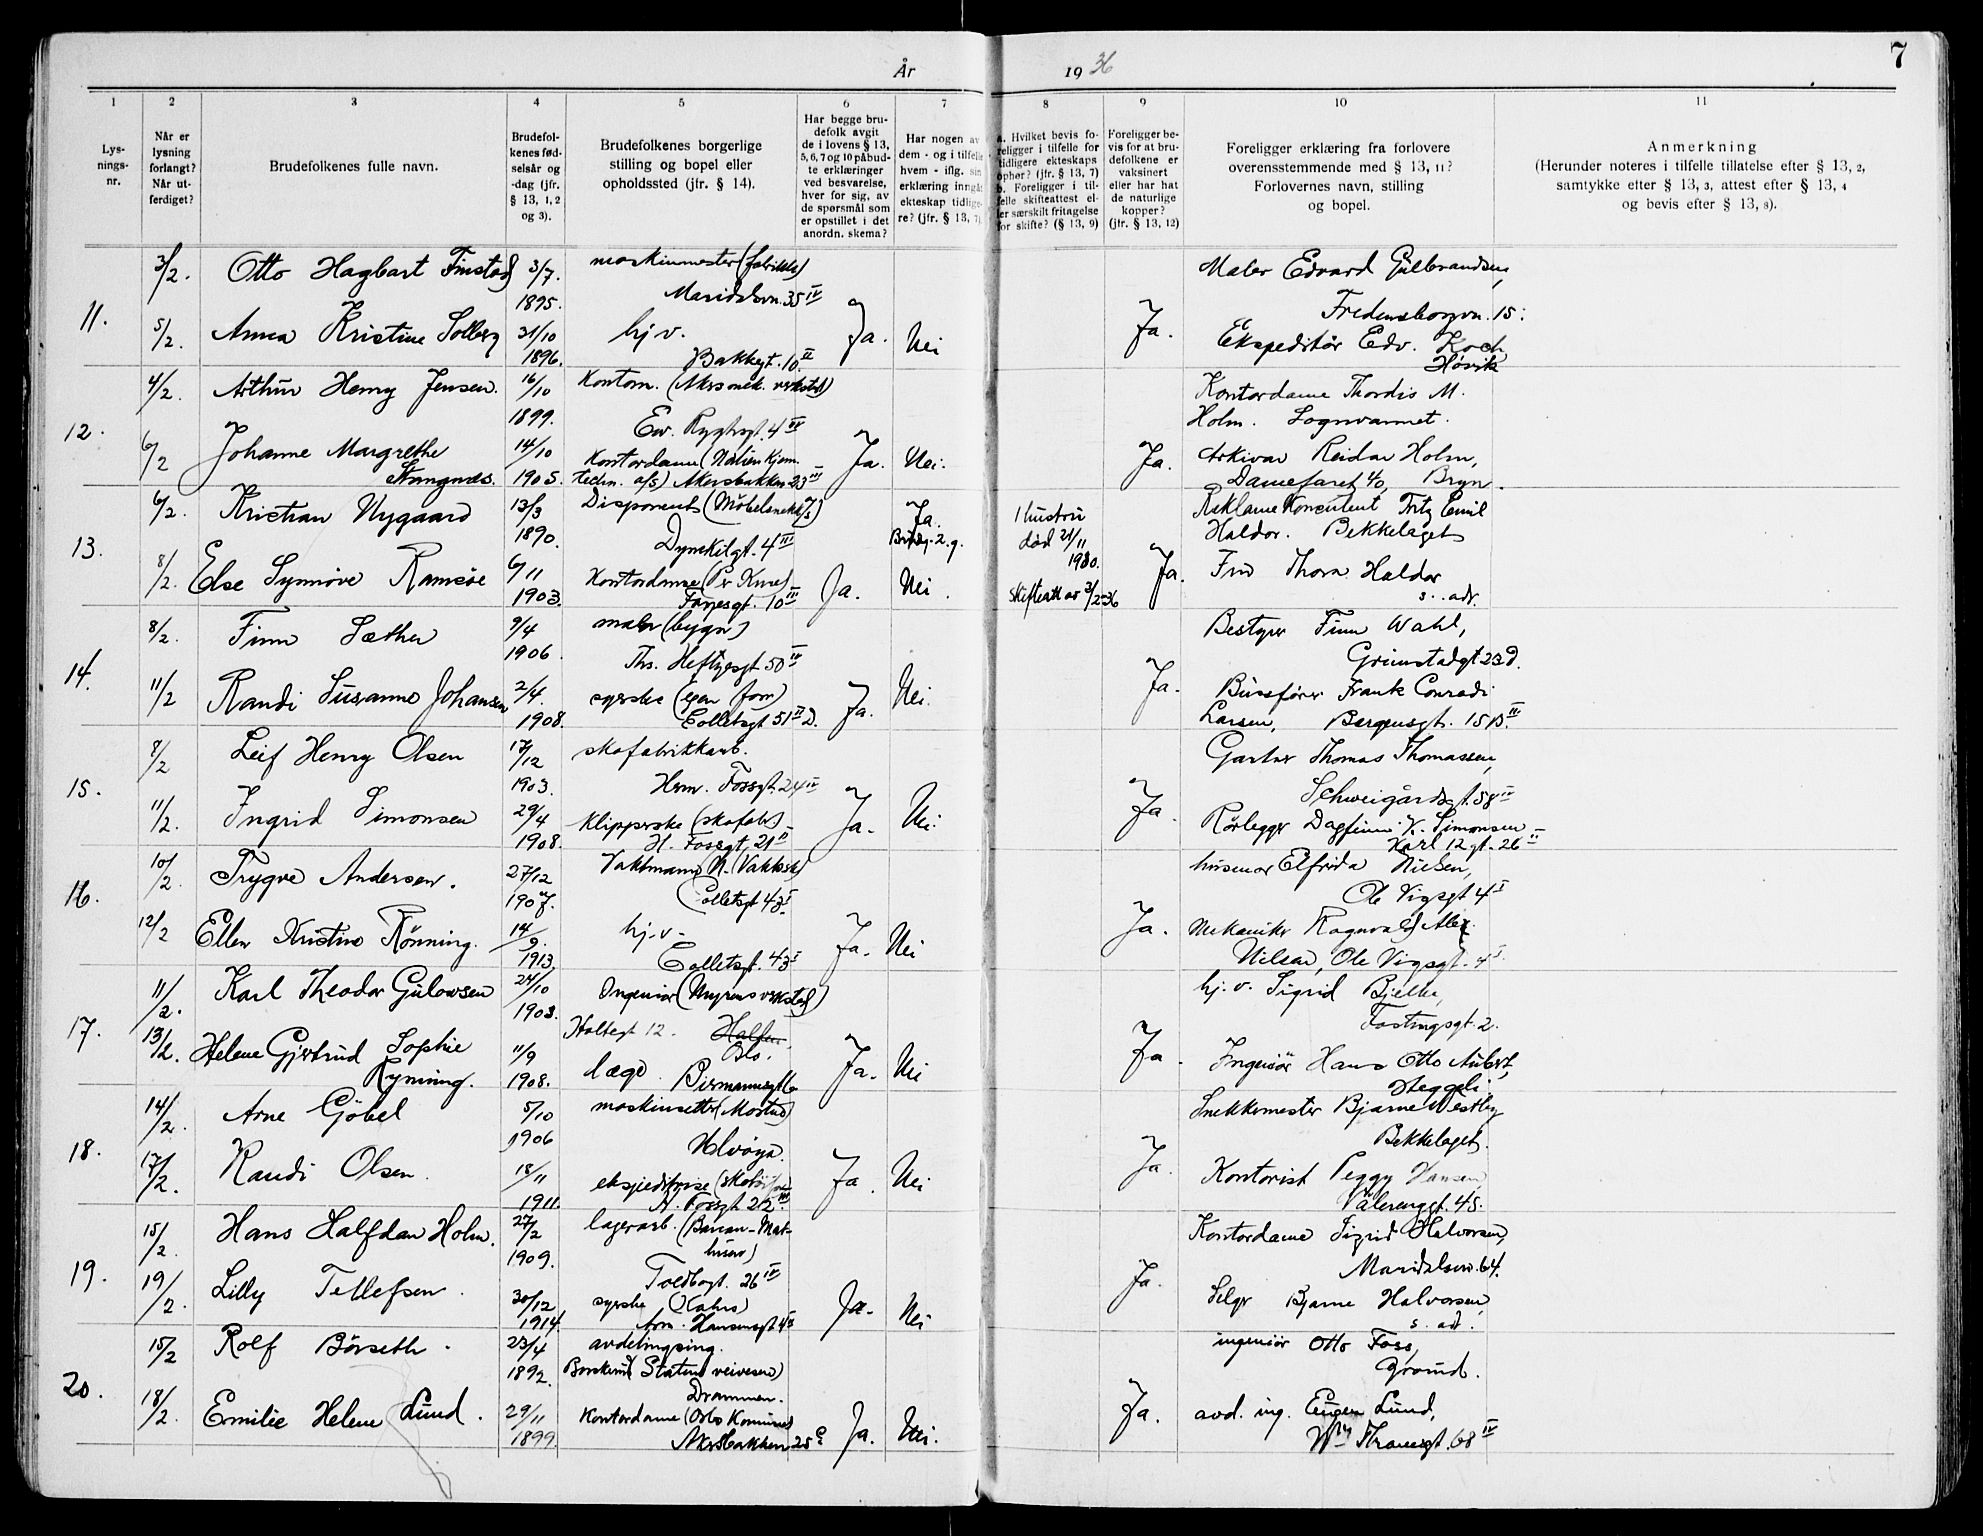 År 1936
7
1 2 3 4 5 6 7 8 9 10 11
Lysningsnr.
Når er lysning forlangt? Når utferdiget?
Brudefolkenes fulle navn.
Brudefolkenes fødselsår og -dag (jfr. § 13, 1, 2 og 3).
Brudefolkenes borgerlige stilling og bopel eller opholdssted (jfr. § 14).
Har begge brudefolk avgit de i lovens § 13, 5, 6, 7 og 10 påbudte erklæringer ved besvarelse, hver for sig, av de spørsmål som er opstillet i det anordn. skema?
Har nogen av dem - og i tilfelle hvem - iflg. sin erklæring inngåt ekteskap tidligere? (jfr. § 13, 7)
a. Hvilket bevis foreligger i tilfelle for tidligere ekteskaps ophør? (jfr. § 13, 7)
b. Foreligger i tilfelle skifteattest eller særskilt fritagelse for skifte? (§ 13, 9)
Foreligger bevis for at brudefolkene er vaksinert eller har hat de naturlige kopper? (jfr. § 13, 12)
Foreligger erklæring fra forlovere overensstemmende med § 13, 11? Forlovernes navn, stilling og bopel.
Anmerkning
(Herunder noteres i tilfelle tillatelse efter § 13, 2, samtykke efter § 13, 3, attest efter § 13, 4 og bevis efter § 13, 8).
11.
3/2. Otto Hagbart Finstad 3/7. 1895. maskinmester (fabrikk) Maridalsvn. 35 IV
5/2. Anna Kristine Solberg 31/10 1896. hj. v. Bakkegt. 10 II Ja. Nei Ja.
Maler Edvard Gulbrandsen,
Fredensborgvn. 15.
Ekspeditør Edv. Koch
Høvik
12.
4/2. Arthur Henry Jensen. 16/10 1899. Kontorm. (Akers mek. verksted) Ew. Ryghsgt. 4 IV
6/2 Johanne Margrethe Stangnæs. 14/10 1905. Kontordame (Norsk kjem. techn. a/s) Akersbakken 23 III Ja. Nei. Ja.
Kontordame Thordis M.
Holm. Sognsvannet.
Arkivar Reidar Holm,
Damefaret 40, Bryn.
13.
6/2. Kristian Nygaard 13/3 1890. Disponent (Møbelsnekk.) Dynekilgt. 4 III Ja.
Hustru død 21/11 1930.
8/2. Else Synnøve Ramsøe 6/11 1903. Kontordame Fayesgt. 10 III Ja. Nei. skifteatt av 3/2-36 Ja.
Reklame Konsulent Fritz Emil
Haldor. Bekkelaget
Fru Thora Haldor
s. adr.
14.
8/2. Finn Sæther 9/4 1906. maler (bygn.) Ths. Heftyesgt. 50 IV
11/2 Randi Susanne Johansen 2/4. 1908. syerske (egen forr.) Colletsgt. 51 II D. Ja. Nei. Ja.
Bestyrer Finn Wahl,
Grimstadgt 23 d.
Bussfører Frank Conradi
Larsen, Bergensgt. 15 B. III
15.
8/2 Leif Henry Olsen 17/12 1903. skofabrikkarb. Herm. Fossgt. 24 IV
11/2. Ingrid Simonsen 29/4 1908. Klipperske (skofabr.) H. Fossgt. 21 II Ja. Nei. Ja.
Gartner Thomas Thomassen,
Schweigårdsgt. 58 IV
Rørlegger Dagfinn Simonsen
Karl 12 gt. 26 II
16.
10/2. Trygve Andersen. 27/12 1907. Vaktmann (N. Vaktsk.) Colletsgt 43 I
12/2 Ellen Kristine Rønning. 14/9. 1913. hj. v. Colletsgt. 43 I Ja. Nei Ja.
husmor Elfrida Nielsen,
Ole Vigsgt 4 I
Mekaniker Ragnvald Alex.
Nilsen, Ole Vigsgt. 4 I
17.
11/2. Karl Theodor Gulowsen 24/10 1903. Ingeniør (Myrens verksted) Holtegt 12. Oslo.
13/2. Helene Gjertrud Sophie Rynning. 11/9 1908. læge Ja. Nei Ja.
hj. v. Sigrid Bjelke,
Fastingsgt. 2.
Ingeniør Hans Otto Aubert,
Heggeli
18.
14/2. Arne Göbel 5/10 1906 maskinsetter (Mortens) Ulvøya.
17/2. Randi Olsen 18/11 1911. ekspeditrise H. Fossgt. 22 III Ja. Nei Ja.
Snekkermester Bjarne Westby
Bekkelaget.
Kontorist Peggy Hansen
Vålerenggt. 45.
19.
15/2. Hans Halfdan Holm. 27/2 1909. lagerarb. Toldbogt. 26 IV
19/2. Lilly Tellefsen. 30/12 1914. syerske Arn. Hansensgt Ja. Nei Ja.
Kontordame Sigrid Halvorsen,
Maridalsvn. 64.
Selger Bjarne Halvorsen,
s. adr.
20.
15/2 Rolf Börseth. 23/4 1892. avdelingsing. (Statens veivesen) Drammen.
18/2. Emilie Helene Lund. 29/11 1899. Kontordame (Oslo Kommune) Akersbakken 25 Ja. Nei. Ja.
ingeniør Otto Foss,
Grorud.
avd. ing. Eugen Lund,
Wm Thranesgt. 68 IV